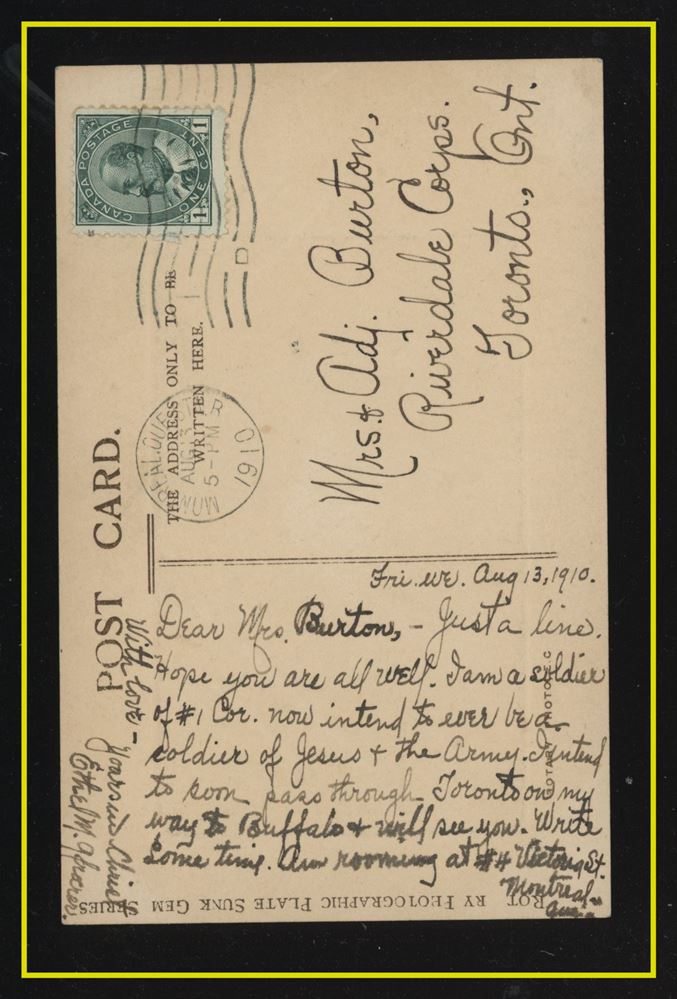 CANADA POSTAGE
ONE CENT
1 1
MONTREAL, QUE.
AUG 13
5-PM
1910
POST CARD.
THE ADDRESS ONLY TO BE
WRITTEN HERE.
Mrs. & Adj. Burton,
Riverdale Corps.
Toronto., Ont.
Fri. eve. Aug 13, 1910.
Dear Mrs. Burton, - Just a line.
Hope you are all well. I am a soldier
of #1 Cor. now intend to ever be a
soldier of Jesus + the Army. I intend
to soon pass through Toronto on my
way to Buffalo + will see you. Write
some time. Am rooming at #4 Victoria St.
Montreal
Que.
With love -
Yours in Christ
Ethel M.
ROTARY PHOTOGRAPHIC PLATE SUNK GEM SERIES